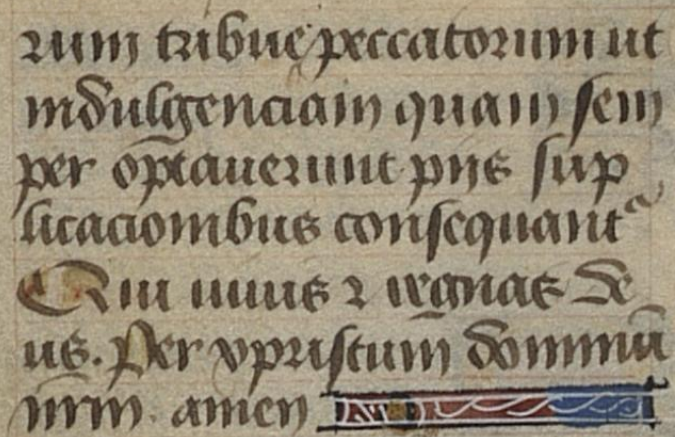 rum tribue peccatorum ut
indulgenciam quam sem
per optauerunt piis sup
licacionibus consequant᷑
Qui uiuis ⁊ regnas de
us. Per xpristum dominū
nr̄m. amen